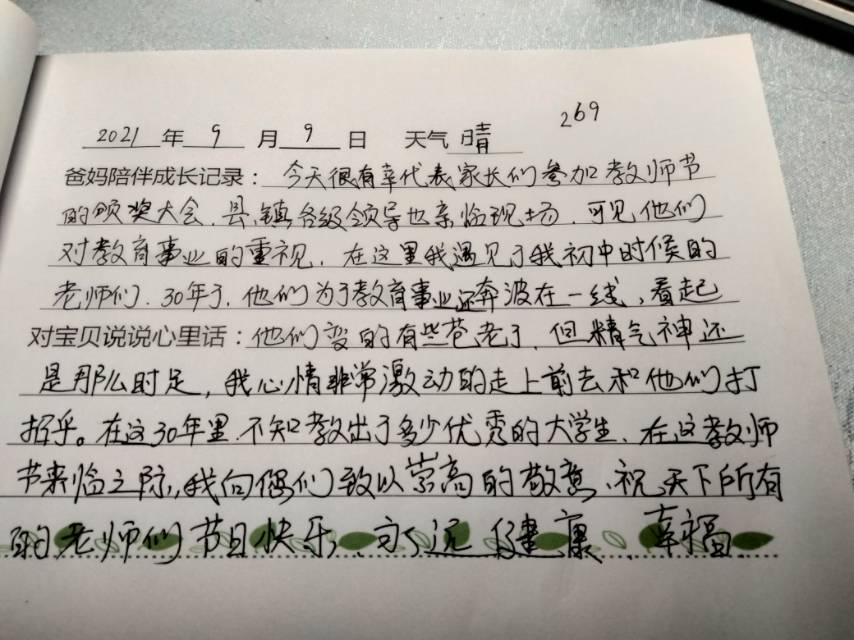 269
2021 年 9 月 9 日 天气 晴
爸妈陪伴成长记录：今天很有幸代表家长们参加教师节
的颁奖大会．县．镇各级领导也亲临现场．可见他们
对教育事业的重视．在这里我遇见了我初中时候的
老师们．30年了．他们为了教育事业还奔波在一线、看起
对宝贝说说心里话：他们变的有些苍老了．但精气神还
是那么时足，我心情非常激动的走上前去和他们打
招乎。在这30年里．不知教出了多少优秀的大学生．在这教师
节来临之际，我向他们致以崇高的敬意、祝天下所有
的老师们节日快乐，永远健康、幸福．